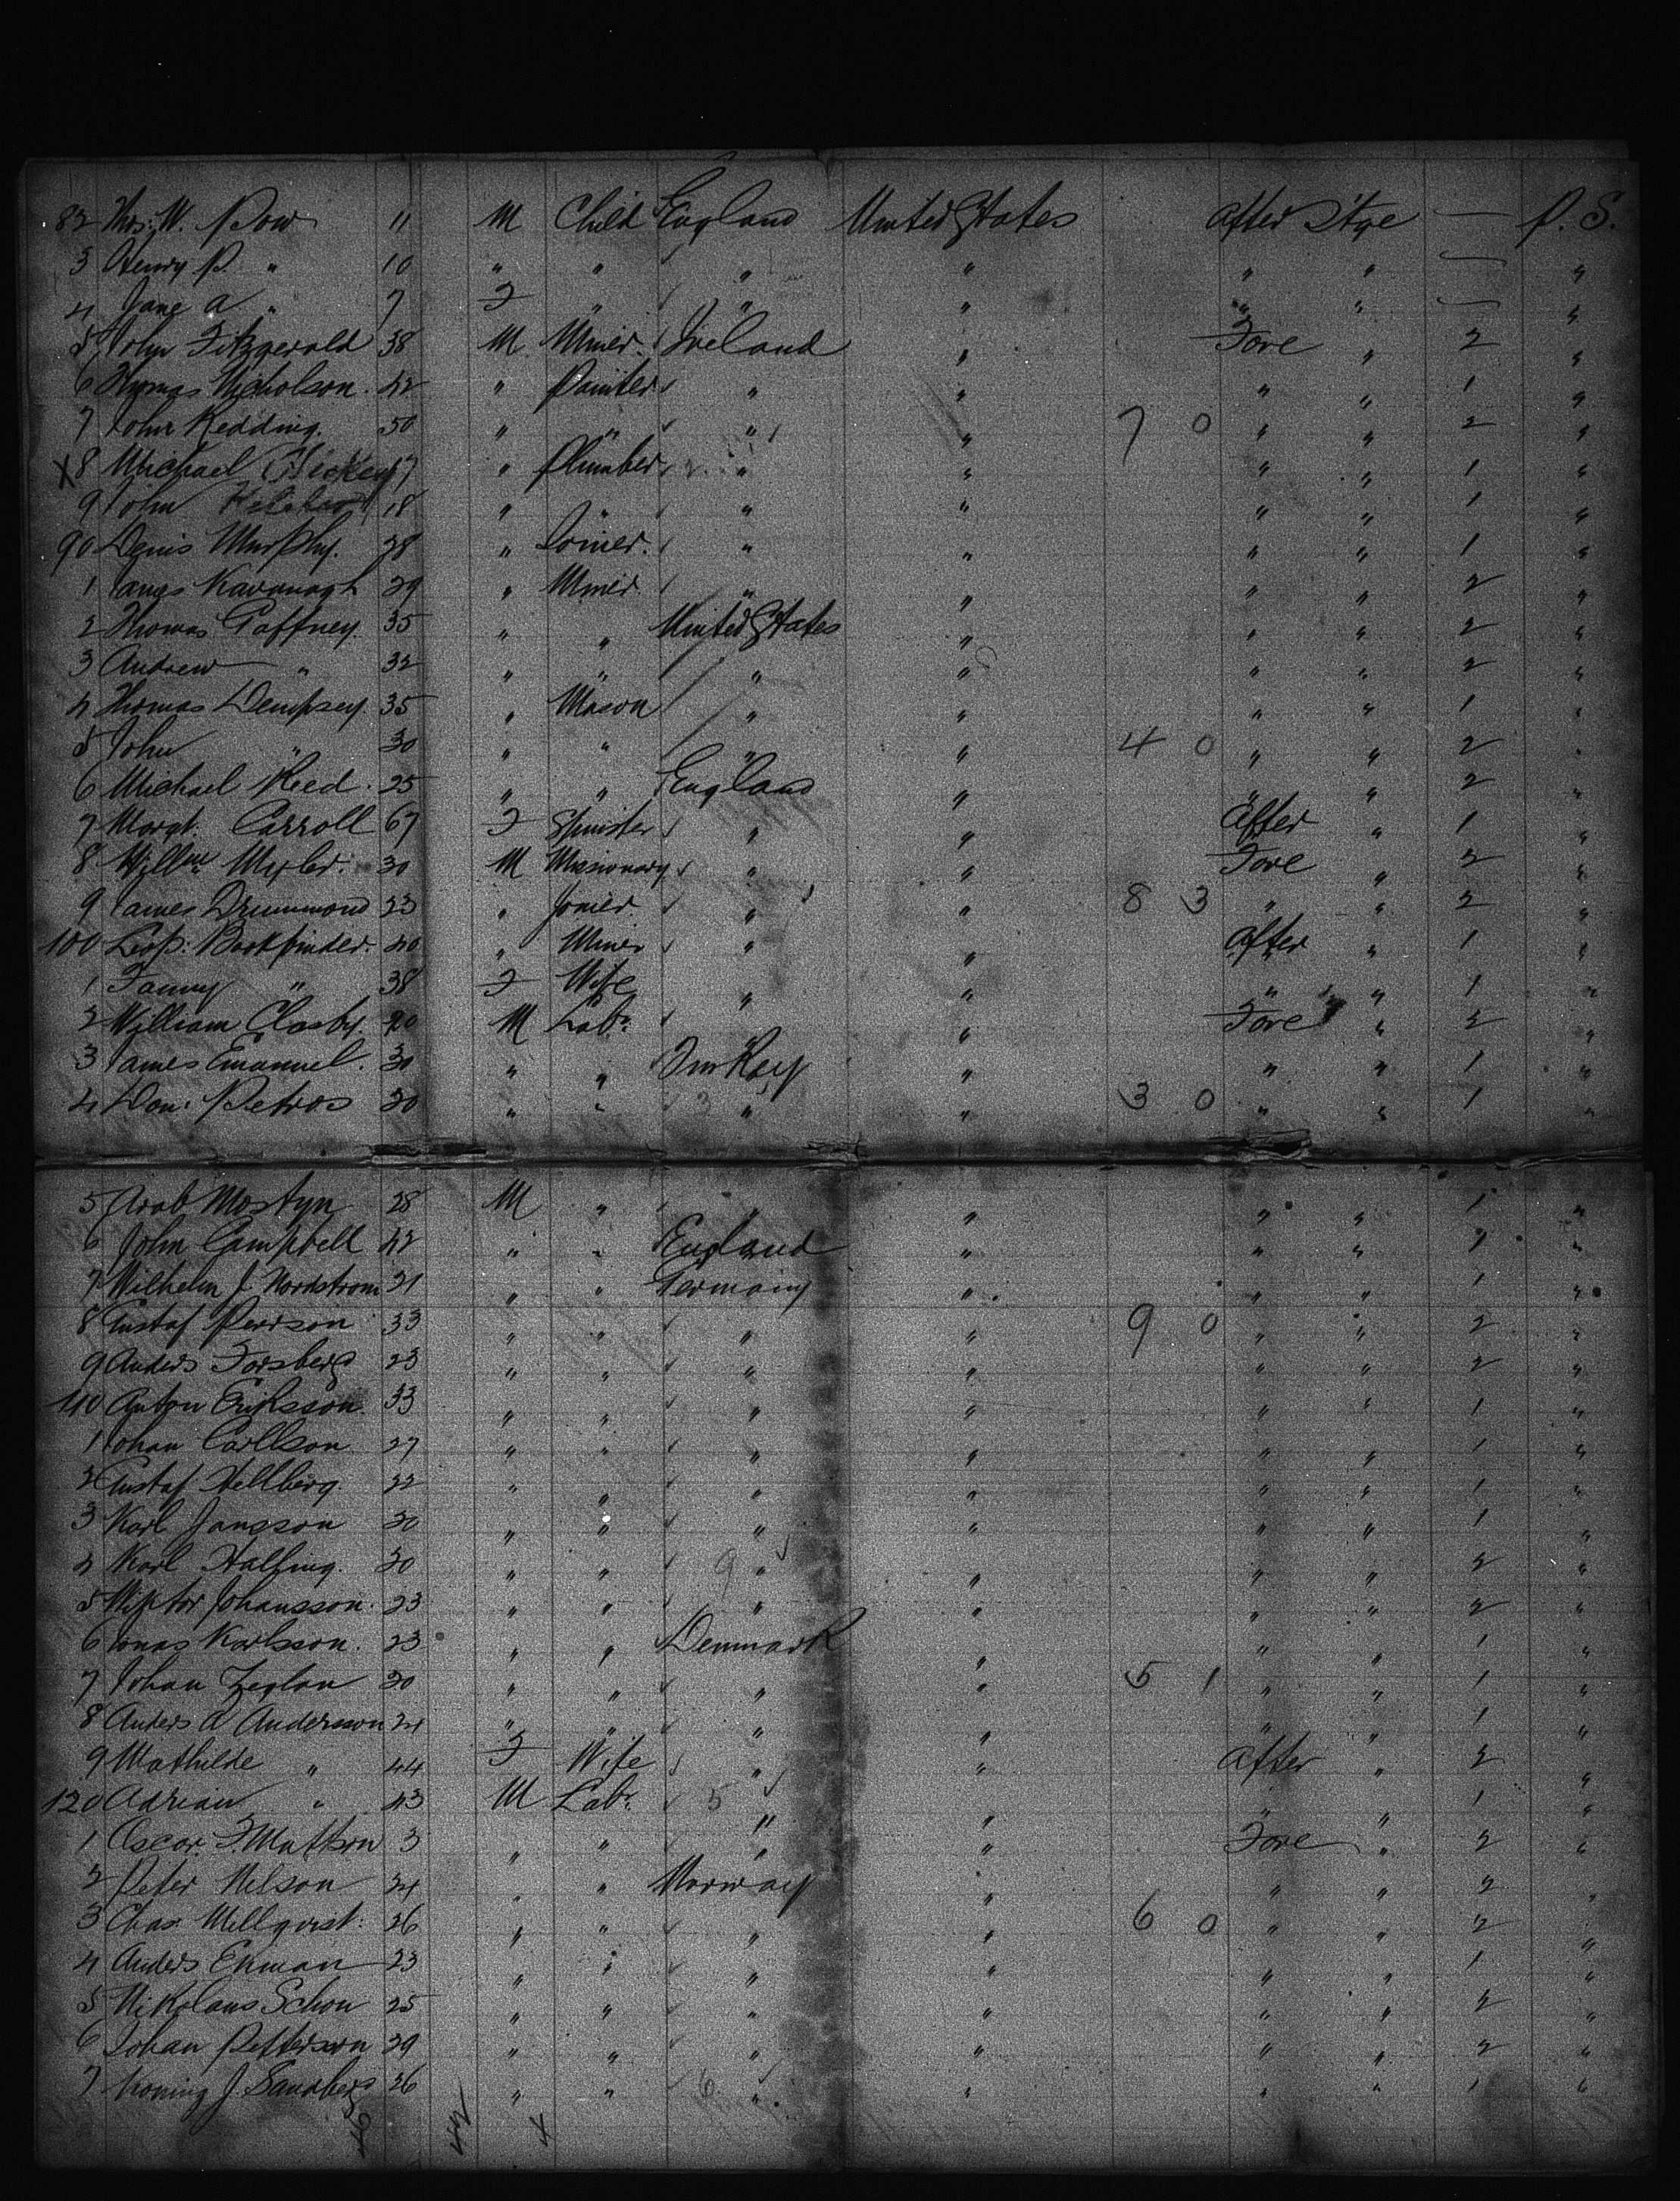 82 W. Pow 11 M Child England United States After Stge — P. S.
3 Henry P. " 10 " " " " " " — "
4 Jane A " 7 F " " " " " — "
5 John Fitzgerald 38 M Miner Ireland " Fore " 2 "
6 Thomas Nicholson. 42 " Painter " " " " 1 "
7 John Redding. 50 " " " " 7 0 " " 2 "
X8 Michael Hickey 17 " Plumber " " " " 1 "
9 John 18 " " " " " " 1 "
90 Denis Murphy. 28 " Joiner. " " " " 1 "
1 James Kavanagh 29 " Miner " " " " 2 "
2 Thomas Gaffney. 35 " " United States " " " 2 "
3 Andrew " 32 " " " " " " 2 "
4 Thomas Dempsey. 35 " Mason " " " " 1 "
5 John " 30 " " " " 4 0 " " 2 "
6 Michael Reed. 25 " " England " " " 2 "
7 Margt. Carroll 67 F Spinster " " After " 1 "
8 Willm 30 M Missionary " " Fore " 2 "
9 James Drummond 23 " Joiner. " " 8 3 " " 2 "
100 Bookbinder. 40 " Miner " " After " 1 "
1 Fanny " 38 F Wife " " " " 1 "
2 William Closby. 20 M Labr " " Fore " 2 "
3 James Emanuel. 30 " " Turkey " " " 1 "
4 Petros 20 " " 3 " " 3 0 " " 1 "
5 Arab Mostyn 28 M " " " " " 1 "
6 John Campbell 42 " " England " " " "
7 Wilhelm J. Nordstrom 21 " " Germany " " " 1 "
8 Gustaf Persson 33 " " " " 9 0 " " 2 "
9 Anders Forsberg 23 " " " " " " 2 "
110 Anton Eriksson. 33 " " " " " " 1 "
1 Johan Carlson 27 " " " " " " 1 "
2 Gustaf Hellberg. 22 " " " " " " 1 "
3 Karl Jansson 20 " " " " " " 1 "
4 Karl Halling. 20 " " 9 " " " " 2 "
5 Johansson. 23 " " " " " " 2 "
6 Jonas Karlsson. 23 " " Denmark " " " 1 "
7 Johan 20 " " " " 5 1 " " 1 "
8 Anders A Andersson 24 " " " " " " 1 "
9 Mathilde " 44 F Wife " " After " 2 "
120 Adrian " 43 M Labr. 5 " " " " 1 "
1 Oscar F. Mattson 3 " " " " Fore " 2 "
2 Peter Nelson 24 " " Norway " " " 2 "
3 Chas. Millqvist: 26 " " " " 6 0 " " 2 "
4 Anders Enman 23 " " " " " " 1 "
5 Nikolaus Schon 25 " " " " " " 2 "
6 Johan Petterson 29 " " " " " " 2 "
7 J. Sandberg 26 " " 6 " " " " 1 "